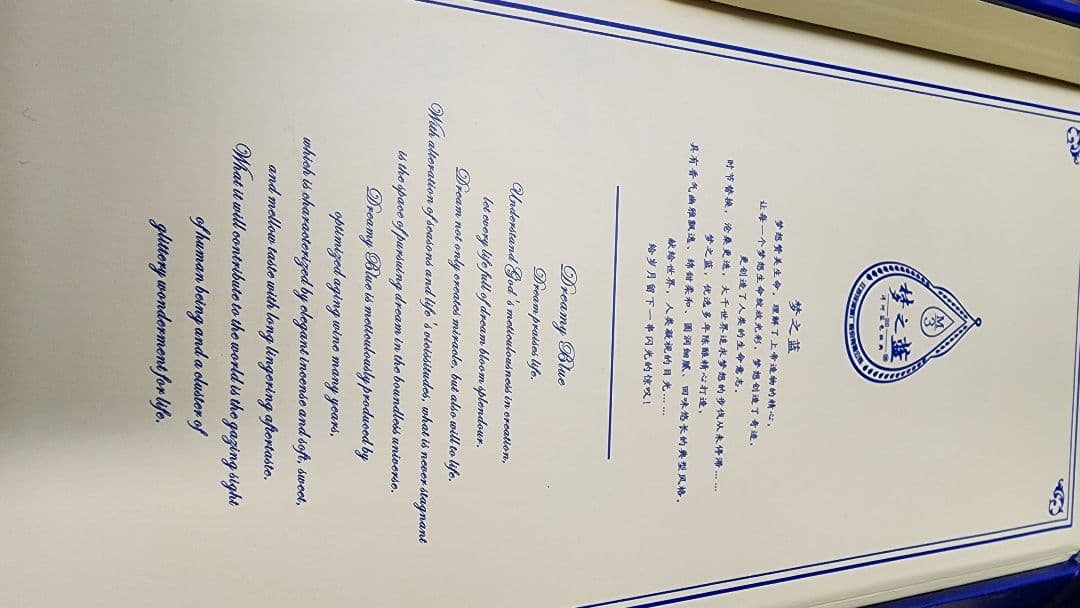 M
3
梦之蓝
梦之蓝
梦想赞美生命,理解了上帝造物的精心,
让每一个梦想生命绽放光彩,梦想创造了奇迹,
更创造了人类的生命意志。
时节替换,沧桑更迭,大千世界追求梦想的步伐从未停滞……
梦之蓝,优选多年陈酿精心打造,
具有香气幽雅飘逸、绵甜柔和、圆润细腻、回味悠长的典型风格。
献给世界,人类凝视的目光……
给岁月留下一串闪光的惊叹!
Dreamy Blue
Dream praises life.
Understand God's meticulousness in creation,
let every life full of dream bloom splendour.
Dream not only creates miracle, but also will to life.
With alteration of seasons and life's vicissitudes, what is never stagnant
is the space of pursuing dream in the boundless universe.
Dreamy Blue is meticulously produced by
optimized aging wine many years,
which is characterized by elegant incense and soft, sweet,
and mellow taste with long lingering aftertaste.
What it will contribute to the world is the gazing sight
of human being and a cluster of
glittery wonderment for life.